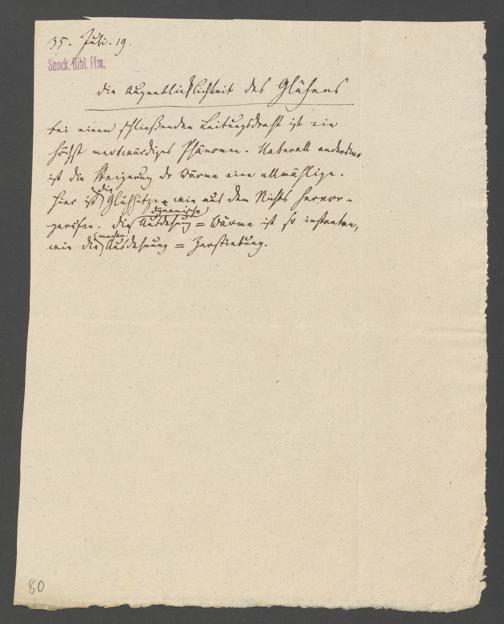 35. Juli. 19.
Senck. Bibl. Ffm.
Die Augenblicklichkeit des Glühens
bei einem schließenden Leitungsdraht ist ein
höchst merkwürdiges Phänomen. Ueberall anderswo
ist die Steigerung der Wärme eine allmählige.
Hier ist die Glühhitze wie aus dem Nichts hervor-
gerufen. Die dynamische Ausdehnung = Wärme ist so instantan,
wie die Ausdehnung = Zerstiebung.
80